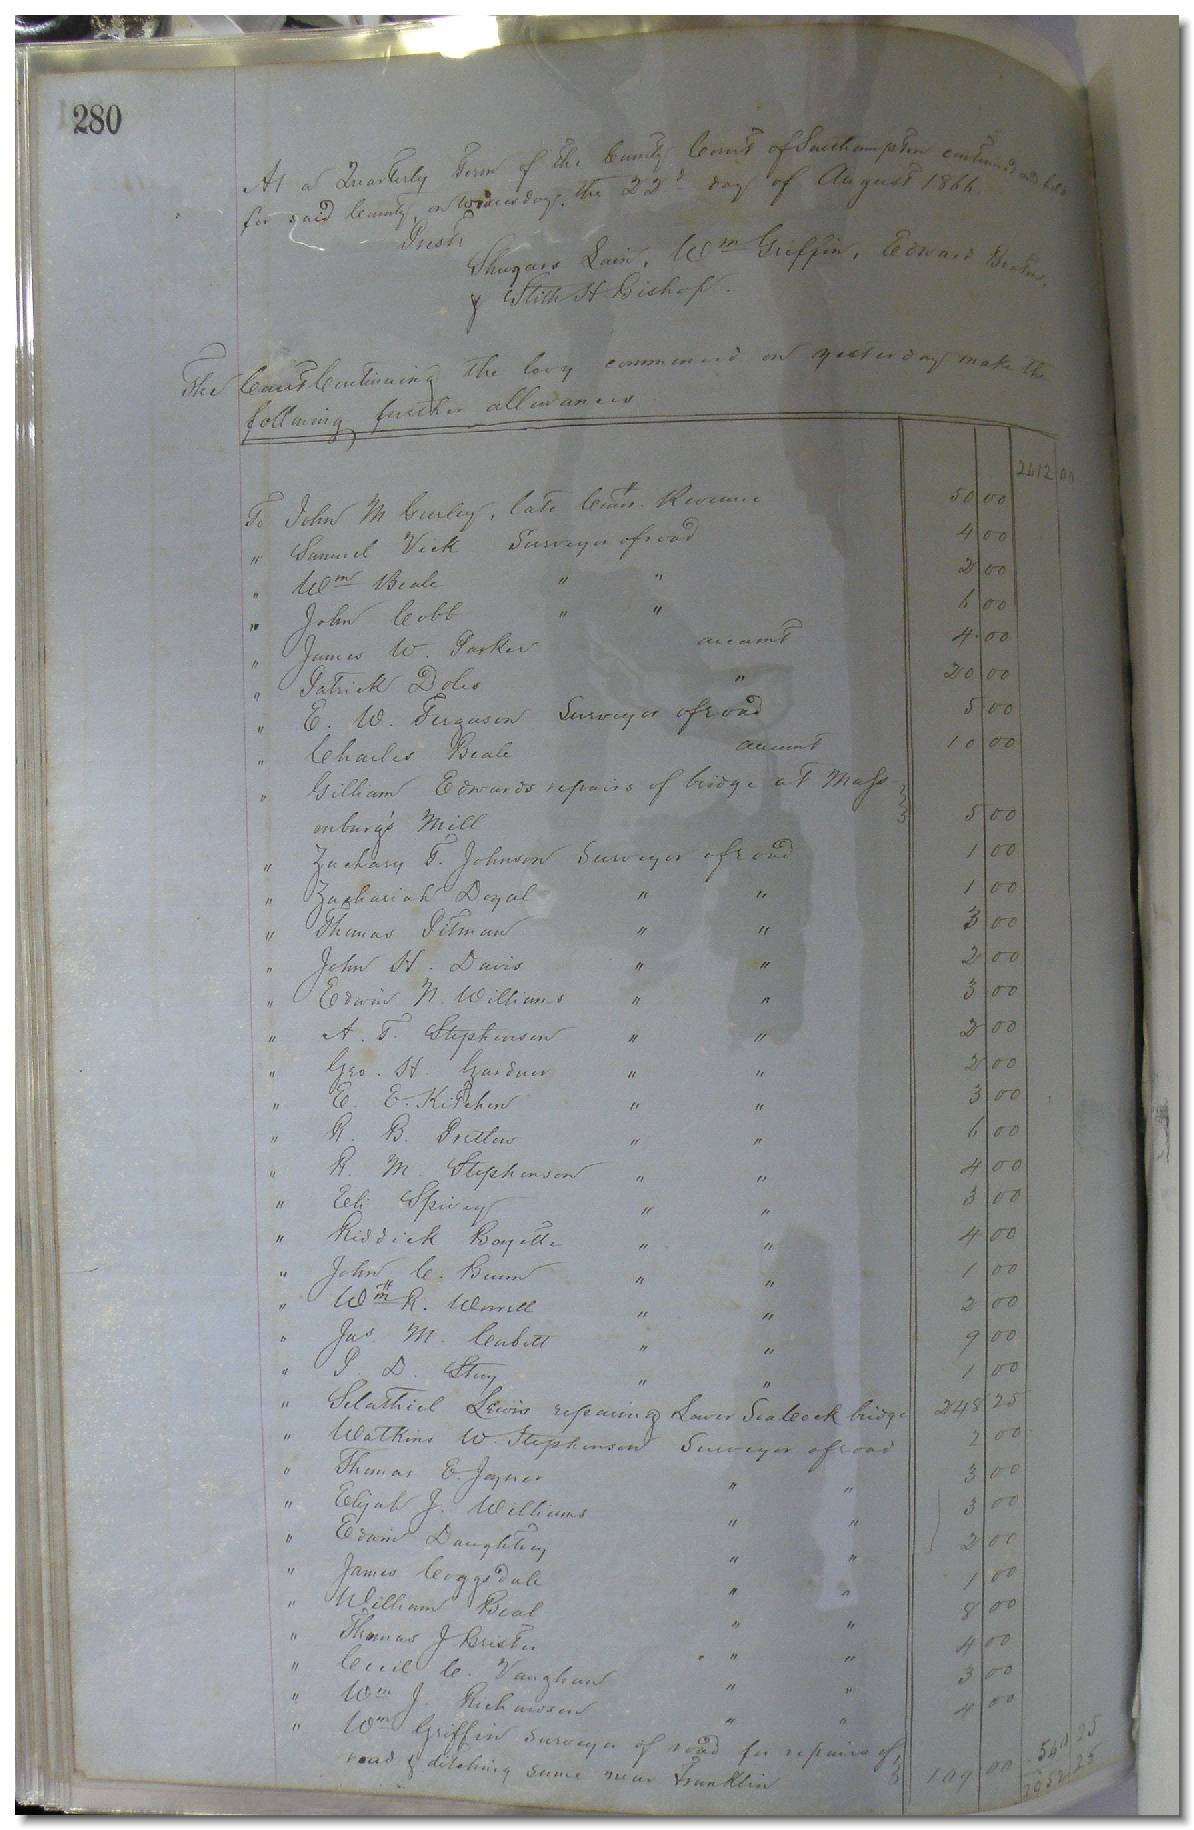 280
At a Quarterly Term of the County Court of Southampton continued and held
for said County, on Wednesday, the 22d day of August 1866
Prest
Shugars Lain, Wm Griffin, Edward
& Stith H Bishop.
The Court Continuing the levy commenced on yesterday make the
following further allowances
2412 00
To John M Gurley, late Comr. Revenue 50 00
" Samuel Vick Surveyor of road 4 00
" Wm Beale " " 2 00
" John Cobb " " 6 00
" James W. Parker account 4 00
" Patrick Doles " 20 00
" E. W. Ferguson Surveyor of road 5 00
" Charles Beale account 10 00
" Gilliam Edwards repairs of bridge at Mass-
enburg's Mill 5 00
" Zachary T. Johnson Surveyor of road 1 00
" Zachariah Doyal " " 1 00
" Thomas Pitman " " 3 00
" John H. Davis " " 2 00
" Edwin N. Williams " " 3 00
" A. T. Stephenson " " 2 00
" Geo. H Gardner " " 2 00
" E. E. Kitchen " " 3 00
" R. B. Pretlow " " 6 00
" R. M. Stephenson " " 4 00
" Eli Spivey " " 3 00
" Riddick Boyette " " 4 00
" John C. Bunn " " 1 00
" Wm R. Worrell " " 2 00
" Jas. M. Corbitt " " 9 00
" P. D. " " 1 00
" Selathiel Lewis repairing Lower Seacock bridge 248 25
" Watkins W. Stephenson Surveyor of road 2 00
" Thomas E. Joyner " " 3 00
" Elijah J. Williams " " 3 00
" Edwin Daughtrey " " 2 00
" James Coggsdale " " 1 00
" William Beal " " 8 00
" Thomas J Brister " " 4 00
" Cecil C. Vaughan " " 3 00
" Wm J. Richardson " " 4 00
" Wm Griffin Surveyor of road for repairs of
road & ditching same near Franklin 109 00 540 25
2952 25